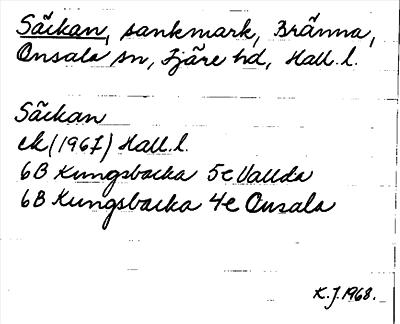 Säckan, sankmark, Bränna,
Onsala sn, Fjäre hd, Hall. l.
Säckan
ek (1967) Hall. l.
6B Kungsbacka 5c Vallda
6B Kungsbacka 4c Onsala
K.J. 1968.